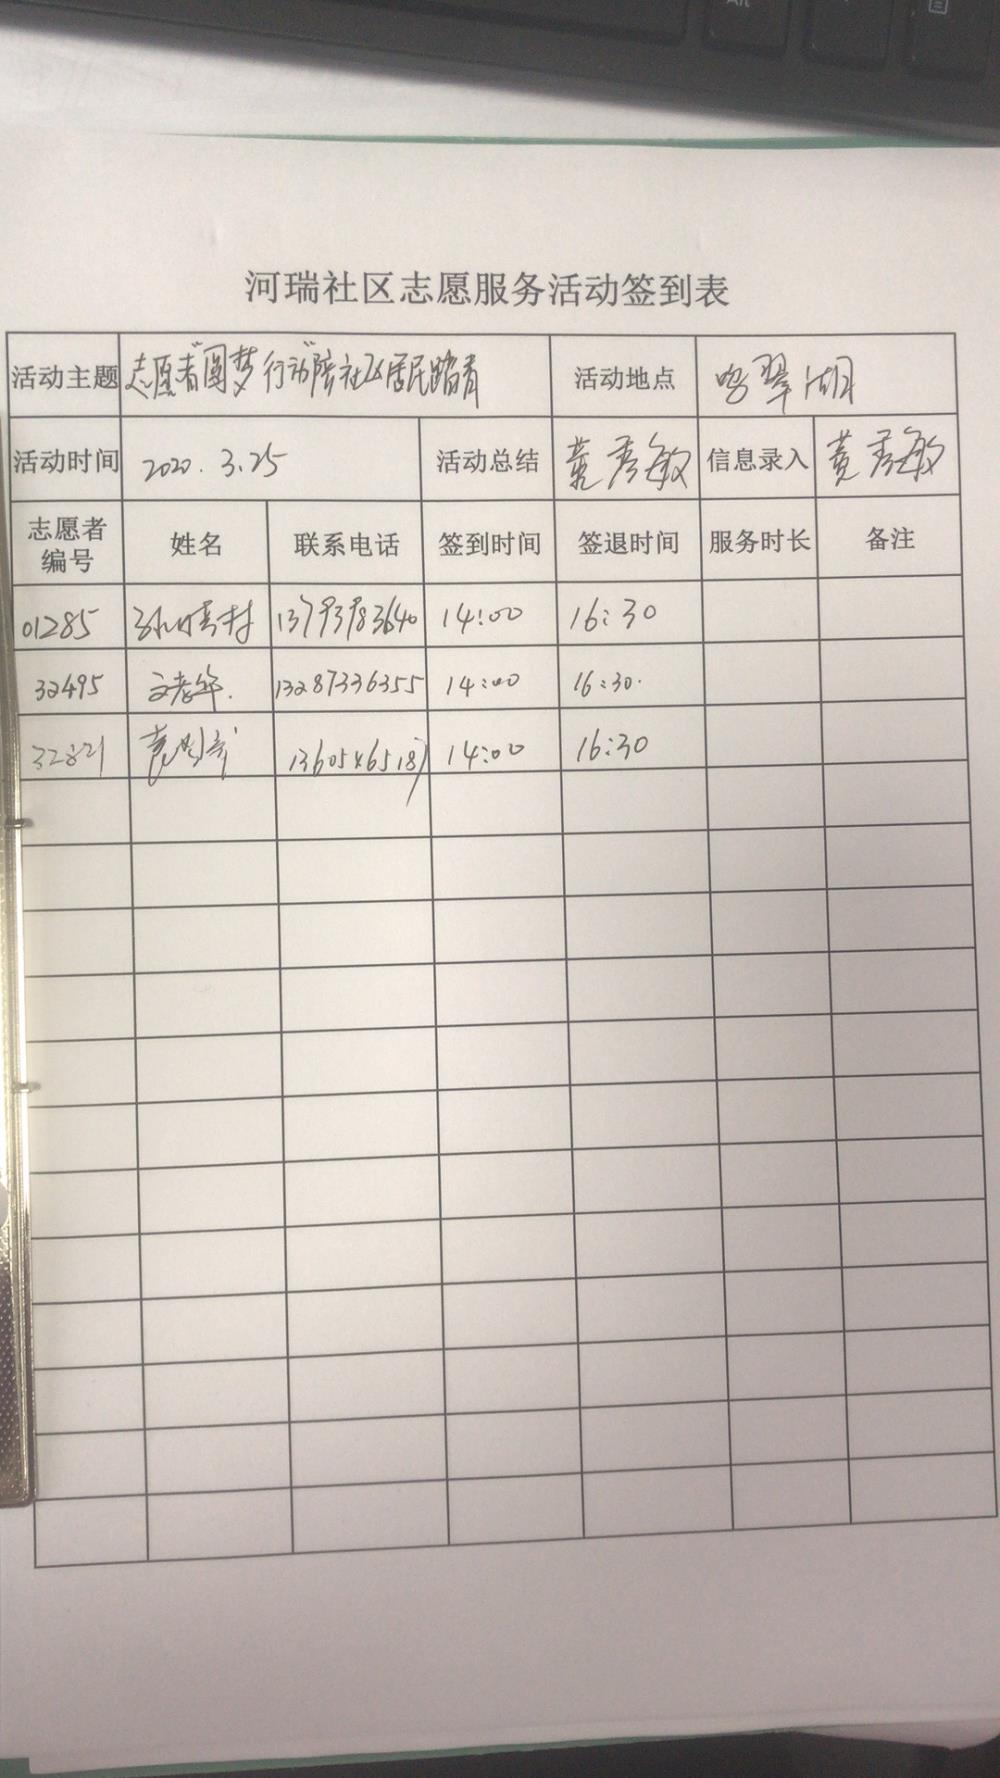 河瑞社区志愿服务活动签到表
活动主题 志愿者"圆梦行动"陪社区居民踏青 活动地点 鸣翠湖
活动时间 2020.3.25 活动总结 黄秀敏 信息录入 黄秀敏
志愿者编号 姓名 联系电话 签到时间 签退时间 服务时长 备注
01285 14:00 16:30
32495 13287336355 14:00 16:30.
14:00 16:30